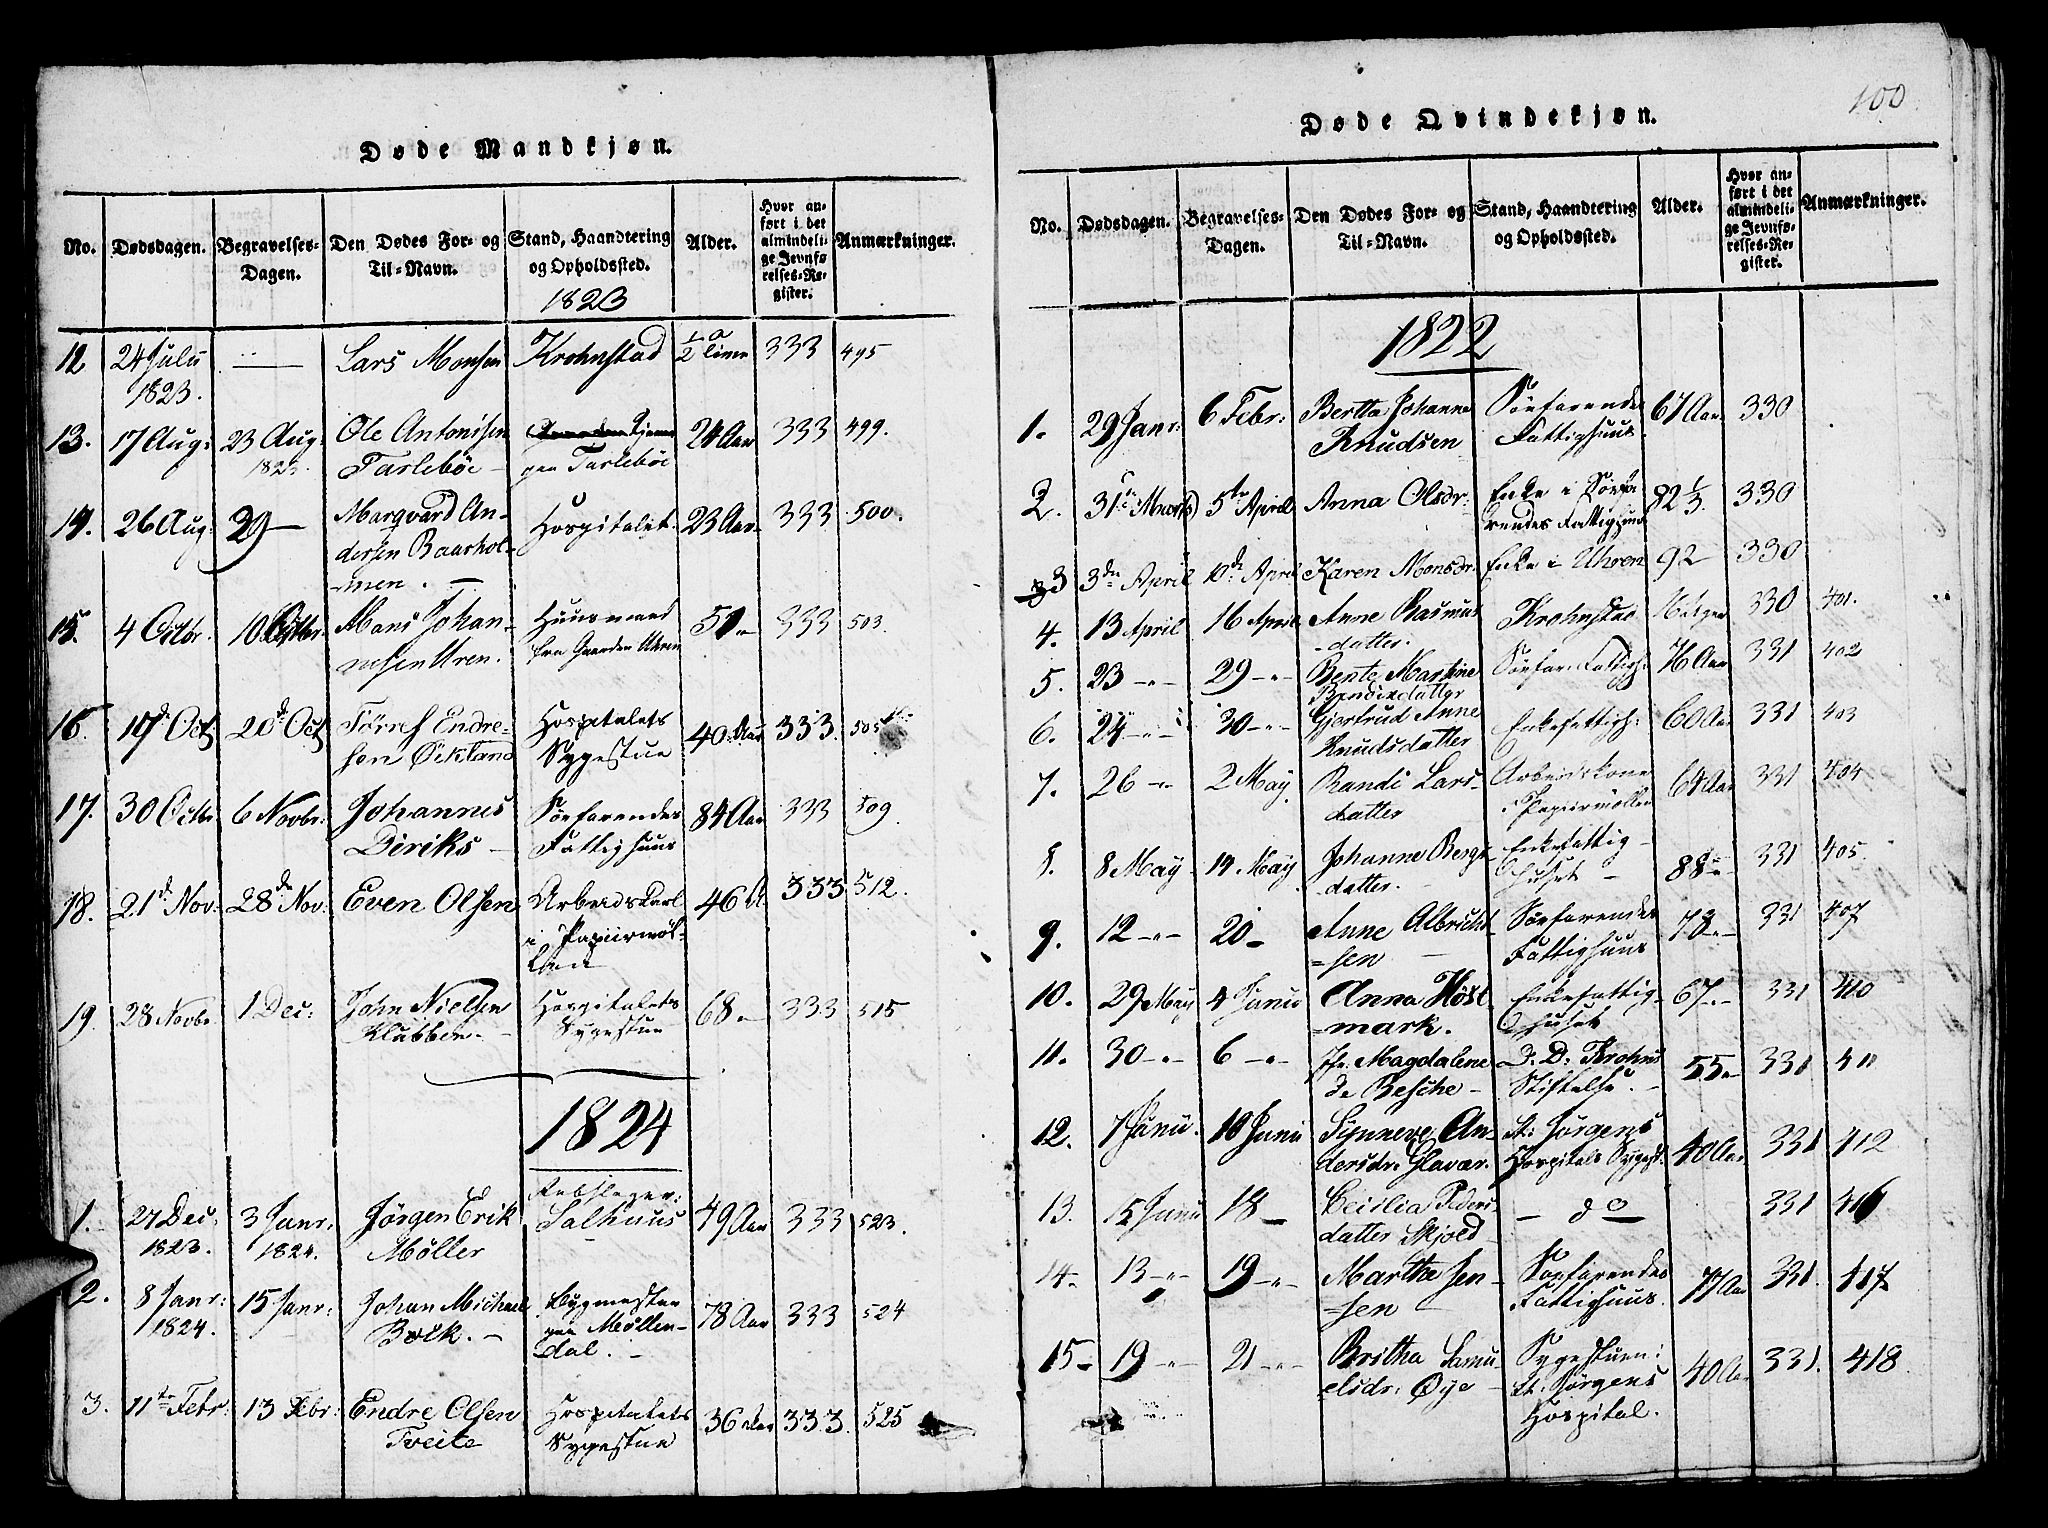 100
Døde Mandkjøn.
No. Dødsdagen. Begravelses-Dagen. Den Dødes For- og Til-Navn. Stand, Haandtering og Opholdssted. Alder. Hvor anført i det almindelige Jevnførelses-Register. Anmærkninger.
1823
12 24 Julii 1823. — Lars Monsen Krohnstad 1/2 333 495
13. 17 Aug: 23 Aug: 1823. Ole Antonisen Tarlebøe 24 Aar 333 499.
14. 26 Aug: 29 — Marqvard Andersen Baarholmen. — Hospitalet. 23 Aar 333 500.
15. 4 Octbr. 10 Octbr. Mons Johannesen Uren. Huusmand fra Gaarden Uhren 333 503.
16. 17de Oct 20de Oct Tørres Endresen Öckland Hospitalets Sygestue 40 Aar 333. 505
17. 30 Octbr 6 Novbr: Johannes Diriks — Söefarendes Fattighuus 84 Aar 333 509.
18. 21de Nov: 28de Nov: Even Olsen Arbeidskarl i Papiirmøllen 46 A 333 512.
19. 28 Novbr. 1 Dec: John Nielsen Klubben. — Hospitalets Sygestue 68 333 515
1824
1. 27 Dec: 1823. 3 Janr: 1824. Jørgen Erik Møller Rebslager: Salhuus 49 Aar 333 523.
2. 8 Janr: 1824. 15 Janr: Johan Michael Bøck. — Bygmester paa Møllendal. — 78 Aar 333 524
3. 11te Febr: 13 Febr: Endre Olsen Tveite Hospitalets Sygestue 36 Aar 333. 525
Døde Qvindekjøn.
No. Dødsdagen. Begravelses-Dagen. Den Dødes For- og Til-Navn. Stand, Haandtering og Opholdssted. Alder. Hvor anført i det almindelige Jevnførelses-Register. Anmærkninger.
1822
1. 29 Janr: 6 Febr: Bertha Johanne Knudsen Söefarendes Fattighuus. 67 Aar 330
2. 31 Marts 5te April Anna Olsdr: Enke i Söefarendes Fattighuus 82 1/3. 330
3 3de April 10de April Karen Monsdr. Enke i Uhren 92 330
4. 13 April 16 April Anne Rasmusdatter. Krohnstad 330 401.
5. 23 -"- 29 -"- Bente Martine Bendixdatter Söefar: Fattigh: 76 Aar 331 402
6. 24 -"- 30 -"- Gjertrud Anne Knudsdatter Enkefattigh: 60 Aar 331 403
7. 26 -"- 2 May Randi Larsdatter Arbeidskone i Papiirmøllen 64 Aar 331 404
8. 8 May 14 May Johanne Bergsdatter. Enkefattighuset — 88 331 405.
9. 12 -"- 20 - Anne Albrichtsen — Söefarendes Fattighuus 331 407
10. 29 May 4 Junii Anna Høstmark. Enkefattighuset 67 331 410
11. 30 -"- 6 -"- Jfr: Magdalene de Besche — D. D: Krohns Stiftelse. — 55 331 411
12. 7 Junii. 10 Junii Synneve Andersdr. Glavær. St: Jørgens Hospitals Sygest: 40 Aar 331 412
13. 15 Junii 18 — Cecilia Pedersdatter Skjold — do — 331 416
14 - 13 -"- 19 -"- Martha Jensen — Söefarendes Fattighuus. 77 Aar 331. 417
15 - 19 -"- 21 -"- Britha Samuelsdr: Øye — Sygestuen: St: Jörgens Hospital. 40 Aar 331. 418